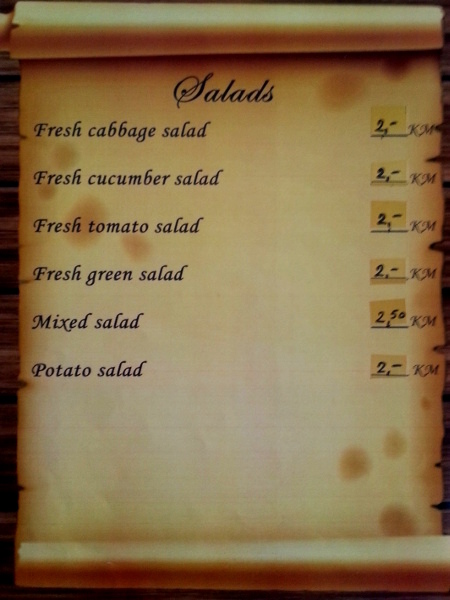 Salads
Fresh cabbage salad 2,- KM
Fresh cucumber salad 2,- KM
Fresh tomato salad 2,- KM
Fresh green salad 2,- KM
Mixed salad 2,50 KM
Potato salad 2,- KM